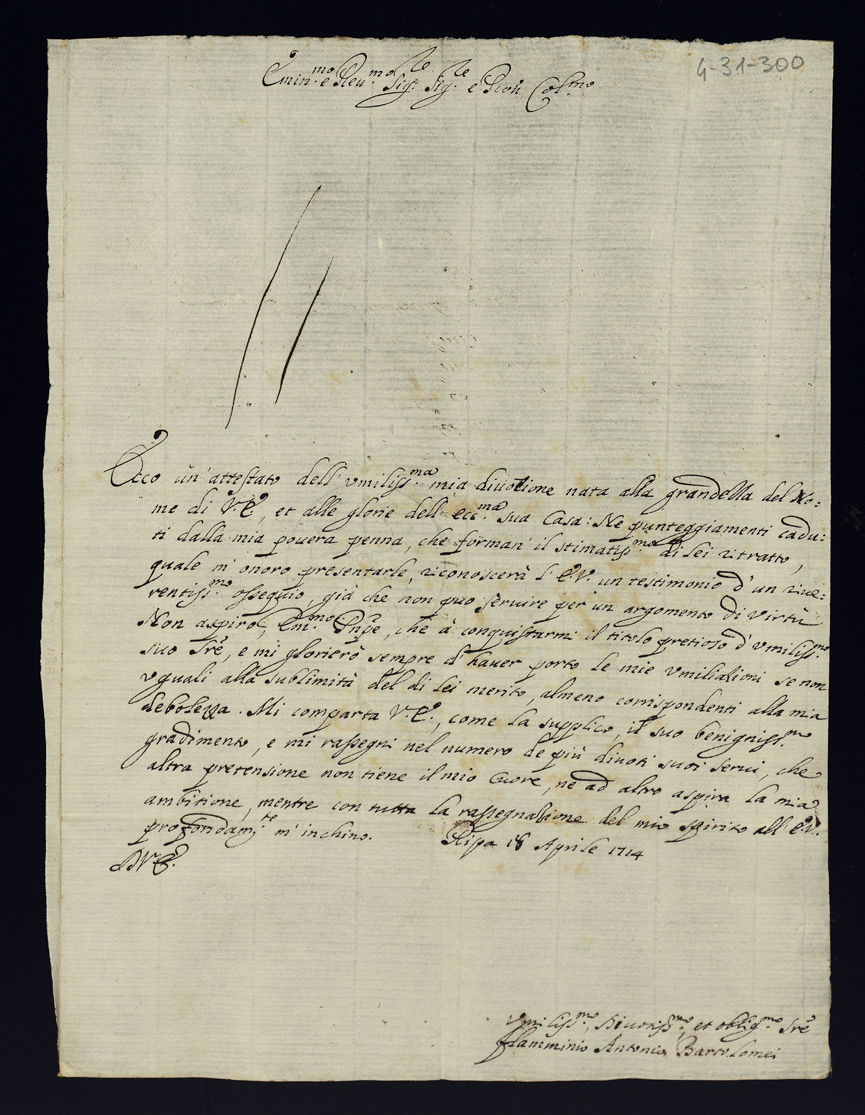 4-31-300
Emin.mo e Reu.mo Sig.re Sig.re e Pron Col.mo
Ecco un'attestato dell'vmiliss.ma mia diuotione nata alla grandezza del No=
me di V.E., et alle glorie dell'ecc.ma sua Casa: Ne punteggiamenti cadu=
ti dalla mia pouera penna, che forman' il stimatiss.mo di lei ritratto,
quale m'onoro presentarle, riconoscerà l'E.V. un testimonio d'un riue=
rentiss.mo ossequio, già che non può seruire per un argomento di virtù
Non aspiro, Em.mo Pnpe, che à conquistarmi il titolo pretioso d'vmiliss.mo
suo Sre, e mi glorierò sempre d'hauer porto le mie vmiliationi se non
vguali alla sublimità del di lei merito, almeno corrispondenti alla mia
debolezza. Mi comparta V.E., come la supplico, il suo benigniss.mo
gradimento, e mi rassegni nel numero de più diuoti suoi serui, che
altra pretensione non tiene il mio Cuore, nè ad altro aspira la mia
ambitione, mentre con tutta la rassegnazione del mio spirito all'E.V.
profondam.te m'inchino. Ripa 18 Aprile 1714
D.V.E.
Vmiliss.mo, Diuotiss.mo, et oblig.mo Sre
Flamminio Antonio Bartolomei